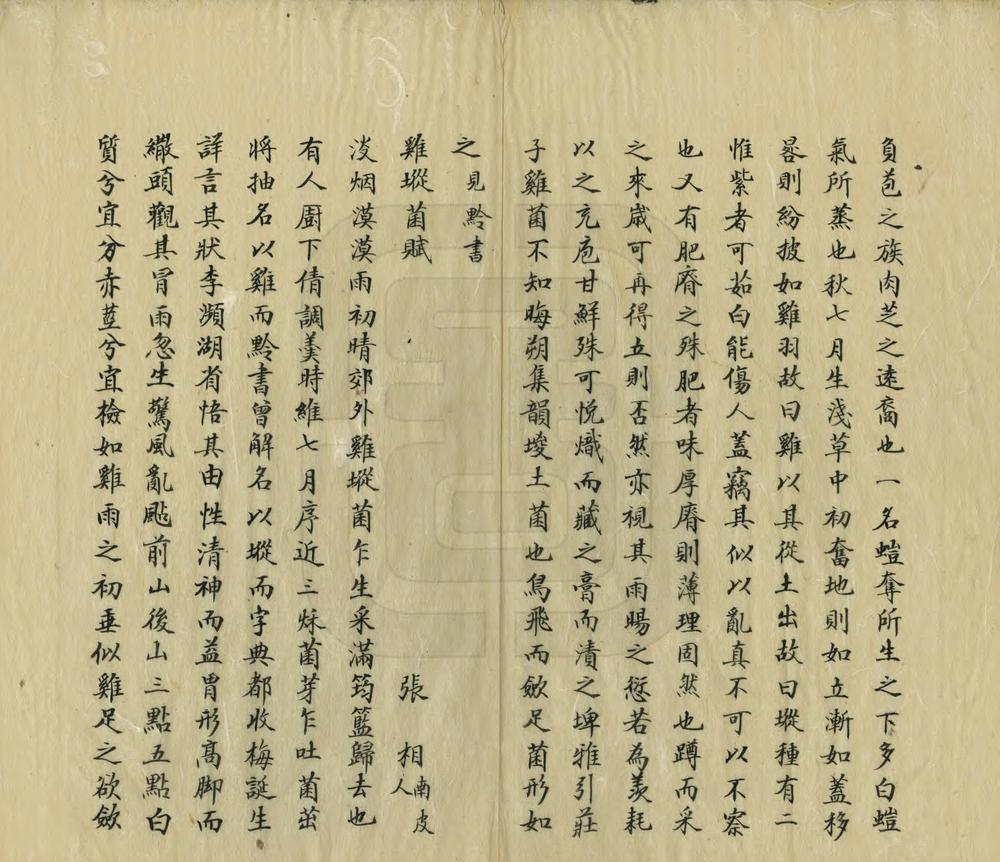 負苞之族肉芝之逺裔也一名螘奪所生之下多白螘
氣所蒸也秋七月生淺草中初奮地則如立漸如蓋移
晷則紛披如雞羽故曰雞以其從土出故曰㙡種有二
惟紫者可茹白能傷人蓋竊其似以亂真不可以不察
也又有肥瘠之殊肥者味厚瘠則薄理固然也蹲而采
之來嵗可再得立則否然亦視其雨暘之愆若為羨耗
以之充庖甘鮮殊可悦熾而藏之膏而漬之埤雅引莊
子雞菌不知晦朔集韻堫土菌也鳥飛而歛足菌形如
之見黔書
雞㙡菌賦　張相南皮人
淡烟漠漠雨初晴郊外雞㙡菌乍生采滿筠籃歸去也
有人厨下倩調羹時維七月序近三秌菌芽乍吐菌茁
將抽名以雞而黔書曾解名以㙡而字典都收梅誕生
詳言其狀李瀕湖省悟其由性清神而益胃形高脚而
繖頭觀其冐雨忽生驚風亂颭前山後山三點五點白
質兮宜分赤莖兮宜檢如雞雨之初垂似雞足之欲歛